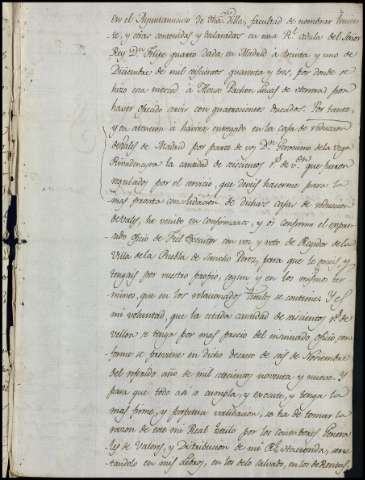 en el Ayuntamiento de dha. Villa, facultad de nombrar Tenien-
te, y otras contenidas y declaradas en una Rl. cedula del Señor
Rey Dn. Felipe quarto dada en Madrid à treinta y uno de
Diciembre de mil seiscientos quarenta y tres, por donde se
hizo esta merced à Pacheco por
haver ofrecido servir con quatrocientos ducados. Por tanto,
y en atencion à haverse entregado en la caxa de reduccion
de Vales de Madrid por parte de vos Dn. Geronimo de la Vega
la cantidad de seiscientos rs. de von. que fueron
regulados por el servicio, que deveis hacerme para la
mas pronta consolidacion de dichas caxas de reduccion
de Vales, he venido en confirmaros, y os confirmo el expre-
sado oficio de Fiel Executor con voz y voto de Regidor de la
Villa de la Puebla de Sancho Perez, para que le poseais y
tengais por vuestro propio, segun y en los mismos ter-
minos, que en los relacionados Titulos se contienen. Y es
mi voluntad, que la citada cantidad de seiscientos rs. de
vellon se tenga por mas precio del insinuado oficio, con-
forme se previene en dicho decreto de seis de Noviembre
del referido año de mil setecientos noventa y nueve. Y
para que todo asi se cumpla, y execute, y tenga la
mas firme, y perpetua validacion, se ha de tomar la
razon de este mi Real titulo por los contadores Genera-
les de Valores, y Distribucion de mi Rl. Hacienda, anno-
tandolo en mis Libros, en los de lo salvado, en los de Rentas,